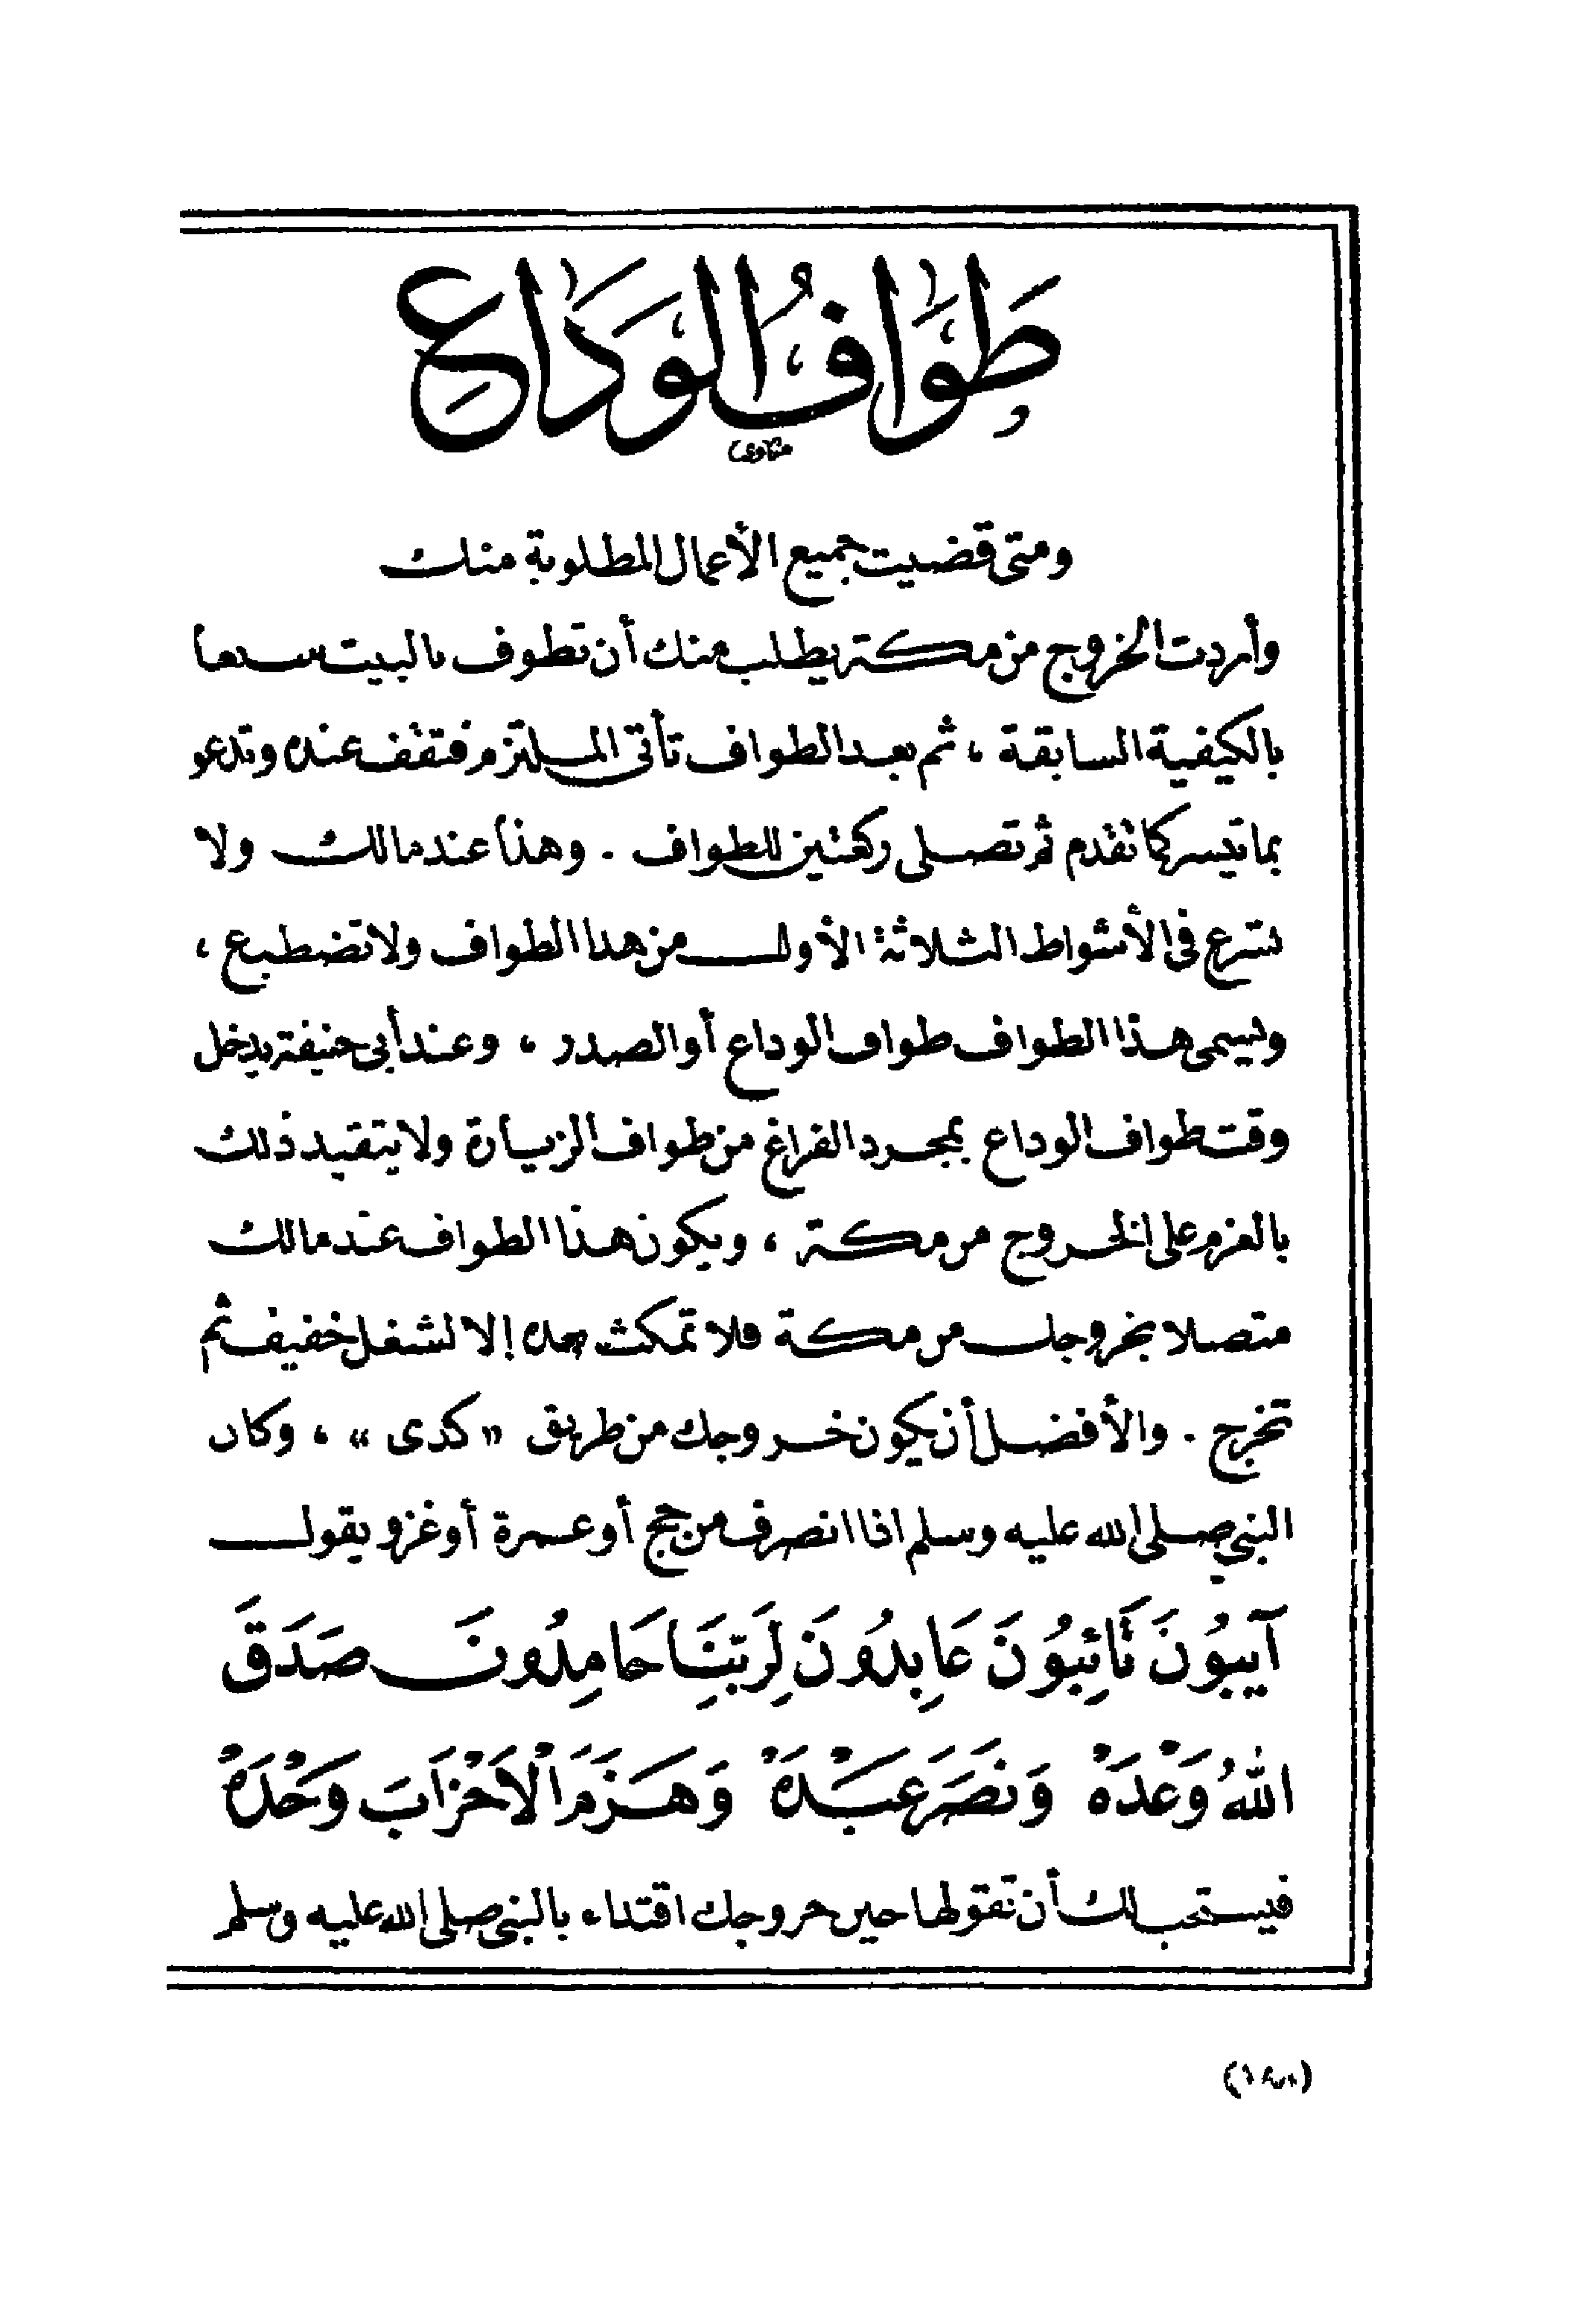 طَوَافُ الوَدَاعِ
ومتى قضيت جميع الأعمال المطلوبة منك
وأردت الخروج من مكة يطلب منك أن تطوف بالبيت سبعا
بالكيفية السابقة ، ثم بعد الطواف تأتى الملتزم فتقف عنده وتدعو
بما تيسر كما تقدم ثم تصلى ركعتين للطواف . وهذا عند مالك ولا
تسرع فى الأشواط الثلاثة الأول من هذا الطواف ولا تضطبع ،
ويسمى هذا الطواف طواف الوداع أو الصدر ، وعند أبى حنيفة يدخل
وقت طواف الوداع بمجرد الفراغ من طواف الزيارة ولا يتقيد ذلك
بالعزم على الخروج من مكة ، ويكون هذا الطواف عند مالك
متصلا بخروجك من مكة فلا تمكث بعده إلا لشغل خفيف ثم
تخرج . والأفضل أن يكون خروجك من طريق « كدى » ، وكان
النبي صلى الله عليه وسلم اذا انصرف من حج أو عمرة أو غزو يقول
آيِبُونَ تَائِبُونَ عَابِدُونَ لِرَبِّنَا حَامِدُونَ صَدَقَ
اللهُ وَعْدَهُ وَنَصَرَ عَبْدَهُ وَهَزَمَ الْاَحْزَابَ وَحْدَهُ
فيستحب لك أن تقولها حين خروجك اقتداء بالنبى صلى الله عليه وسلم